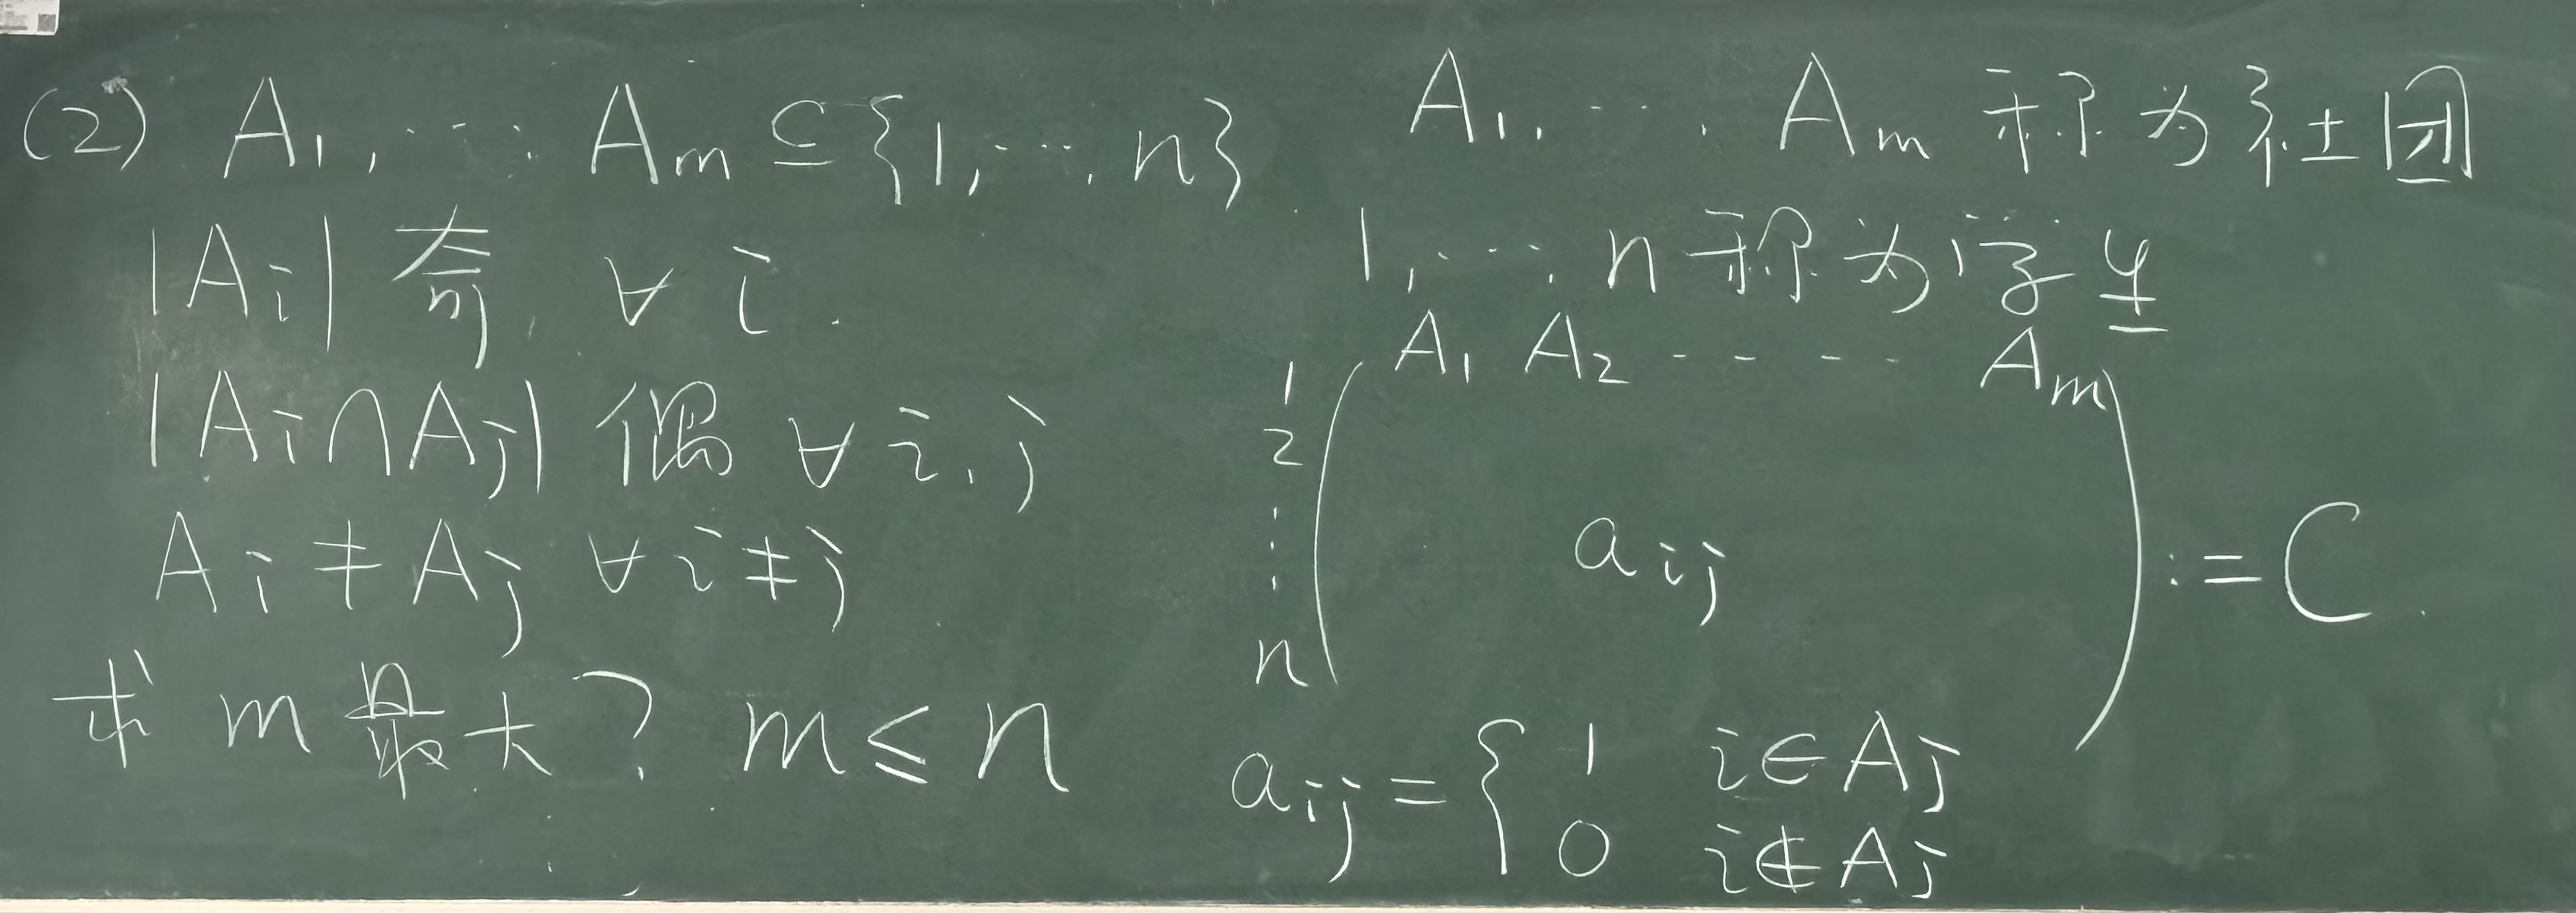 (2) A₁, ⋯, Aₘ ⊆ {1, ⋯, n}.
|Aᵢ| 奇, ∀ i.
|Aᵢ ∩ Aⱼ| 偶 ∀ i, j
Aᵢ ≠ Aⱼ ∀ i ≠ j
求 m 最大? m ≤ n
A₁, ⋯, Aₘ 称为社团
1, ⋯, n 称为学生
A₁ A₂ ---- Aₘ
1
2
⋮ ( aᵢⱼ ) := C.
n
aᵢⱼ = { 1 i ∈ Aⱼ
0 i ∉ Aⱼ